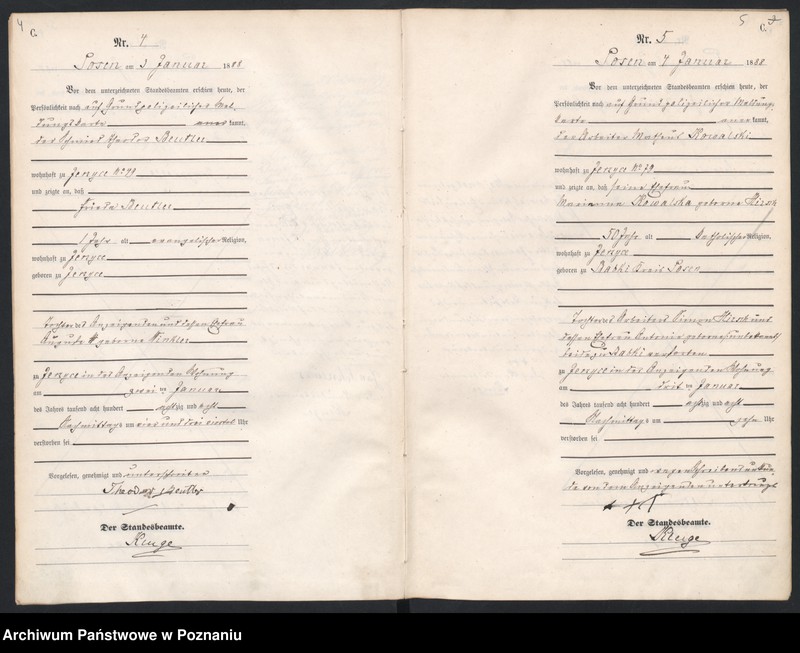 4
C.
Nr. 4
Posen am 3 Januar 1888
Vor dem unterzeichneten Standesbeamten erschien heute, der
Persönlichkeit nach auf Grund polizeilicher Mel
dungskarte kannt,
der Schmied Theodor Beutler
wohnhaft zu Jerzyce No
und zeigte an, daß
Frieda Beutler
1 Jahr alt evangelischer Religion,
wohnhaft zu Jerzyce
geboren zu Jerzyce
Tochter des Anzeigenden und dessen Ehefrau
Auguste geborene Winkler
zu Jerzyce in des Anzeigenden Wohnung
am zwei ten Januar
des Jahres tausend acht hundert achtzig und acht
Nachmittags um vier und drei viertel Uhr
verstorben sei
Vorgelesen, genehmigt und unterschrieben
Theodor Beutler
Der Standesbeamte.
Kruge
5
C.
Nr. 5
Posen am 4 Januar 1888
Vor dem unterzeichneten Standesbeamten erschien heute, der
Persönlichkeit nach auf Grund polizeilicher Meldungs
karte kannt,
der Arbeiter Kowalski
wohnhaft zu Jerzyce No 79
und zeigte an, daß seine Ehefrau
Marianna Kowalska geborene
50 Jahr alt katholischer Religion,
wohnhaft zu Jerzyce
geboren zu Kreis Posen
Tochter des Arbeiters Simon und
dessen Ehefrau Antonie geborene unbekannt
beide zu verstorben
zu Jerzyce in des Anzeigenden Wohnung
am drit ten Januar
des Jahres tausend acht hundert achtzig und acht
Nachmittags um zehn Uhr
verstorben sei
Vorgelesen, genehmigt und wegen Schreibens unkun
de von dem Anzeigenden unterkreuzt
+++
Der Standesbeamte.
Kruge
Archiwum Państwowe w Poznaniu